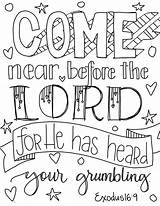 COME
near before the
LORD
for He has heard
your grumbling
Exodus 16:9